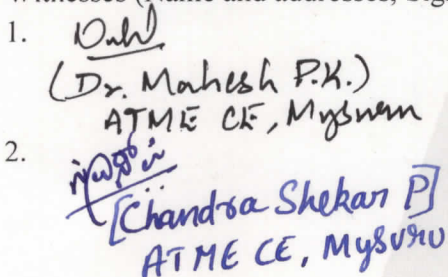 Witnesses (Name and addresses, Sig
1.
(Dr. Mahesh P.K.)
ATME CE, Mysuru
2.
[Chandra Shekar P]
ATME CE, Mysuru